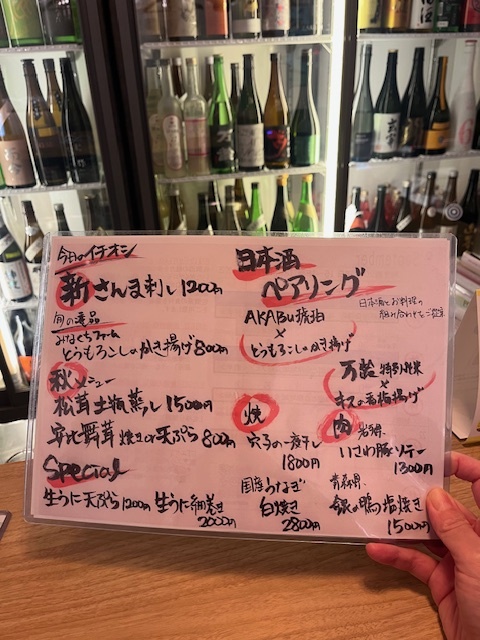 今日のイチオシ
新さんま刺し 1200円
旬の逸品
みなくちファーム
とうもろこしのかき揚げ 800円
秋メニュー
松茸土瓶蒸し 1500円
舞茸 焼きor天ぷら 800円
Special
生うに天ぷら 1200円 生うに細巻き
2000円
日本酒
ペアリング
日本酒とお料理の
組み合わせをご提案
AKABU琥珀
×
とうもろこしかき揚げ
万齢 特別純米
×
キスの香梅揚げ
焼
穴子の一夜干し
1800円
国産うなぎ
白焼き
2800円
肉
岩手県
いさわ豚ソテー
1300円
青森県
銀の鴨塩焼き
1500円